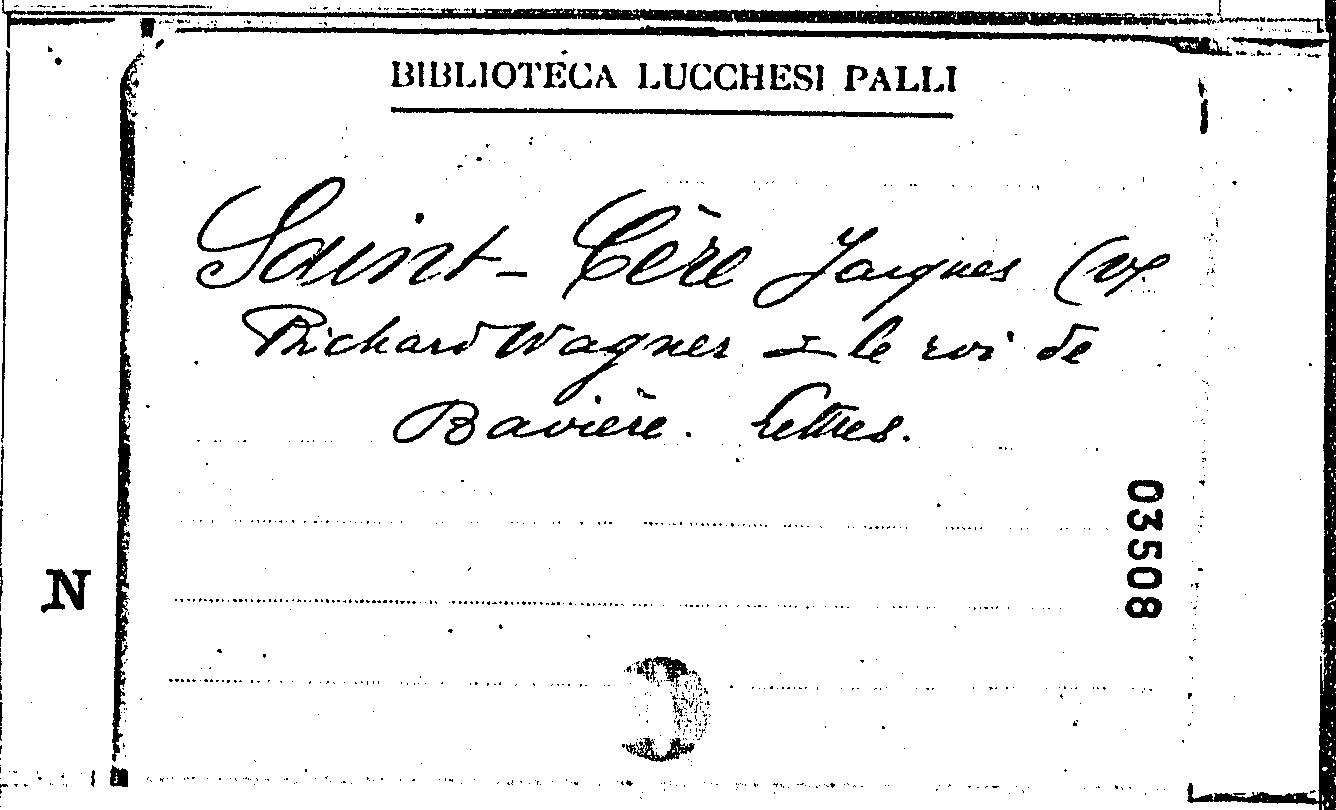 BIBLIOTECA LUCCHESI PALLI
Saint-Cère Jacques (v.
Richard Wagner et le roi de
Bavière. Lettres.
03508
N